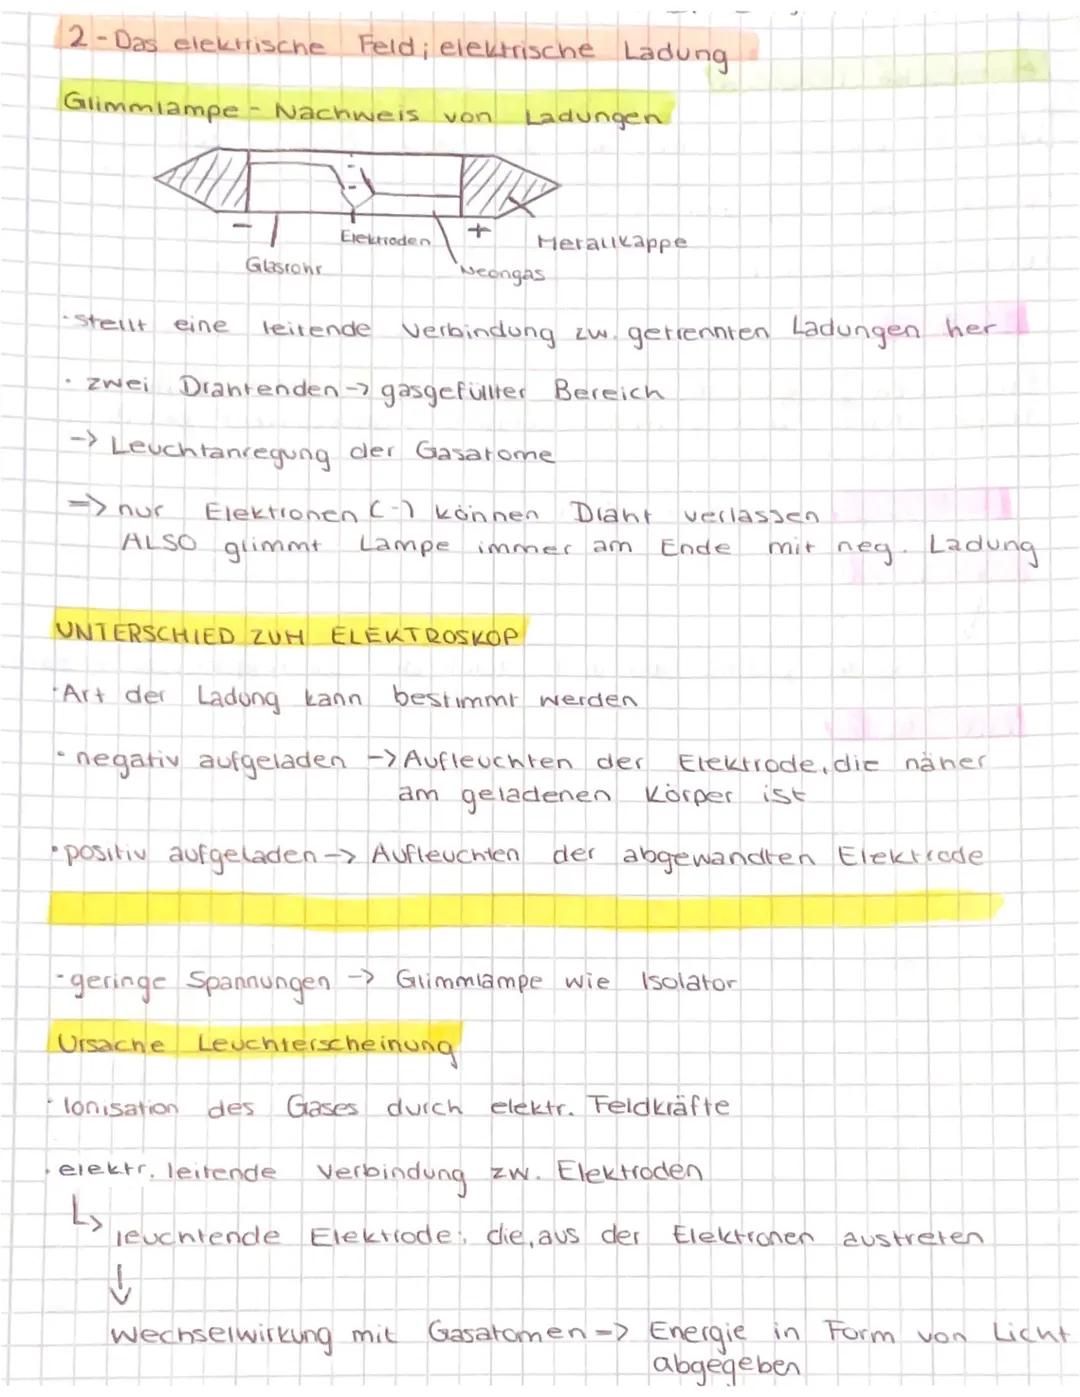 2-Das elektrische Feld; elektrische Ladung
Glimmlampe - Nachweis von Ladungen
- +
Elektroden
Metallkappe
Glasrohr
Neongas
·stellt eine leitende Verbindung zw. getrennten Ladungen her
· zwei Drahtenden -> gasgefüllter Bereich
-> Leuchtanregung der Gasatome
=> nur Elektronen (-) können Draht verlassen
ALSO glimmt Lampe immer am Ende mit neg. Ladung
UNTERSCHIED ZUM ELEKTROSKOP
·Art der Ladung kann bestimmt werden
· negativ aufgeladen -> Aufleuchten der Elektrode, die näher
am geladenen Körper ist
· positiv aufgeladen -> Aufleuchten der abgewandten Elektrode
-geringe Spannungen -> Glimmlampe wie Isolator
Ursache Leuchterscheinung
· Ionisation des Gases durch elektr. Feldkräfte
· elektr. leitende Verbindung zw. Elektroden
↳ leuchtende Elektrode: die, aus der Elektronen austreten
↓
Wechselwirkung mit Gasatomen -> Energie in Form von Licht
abgegeben